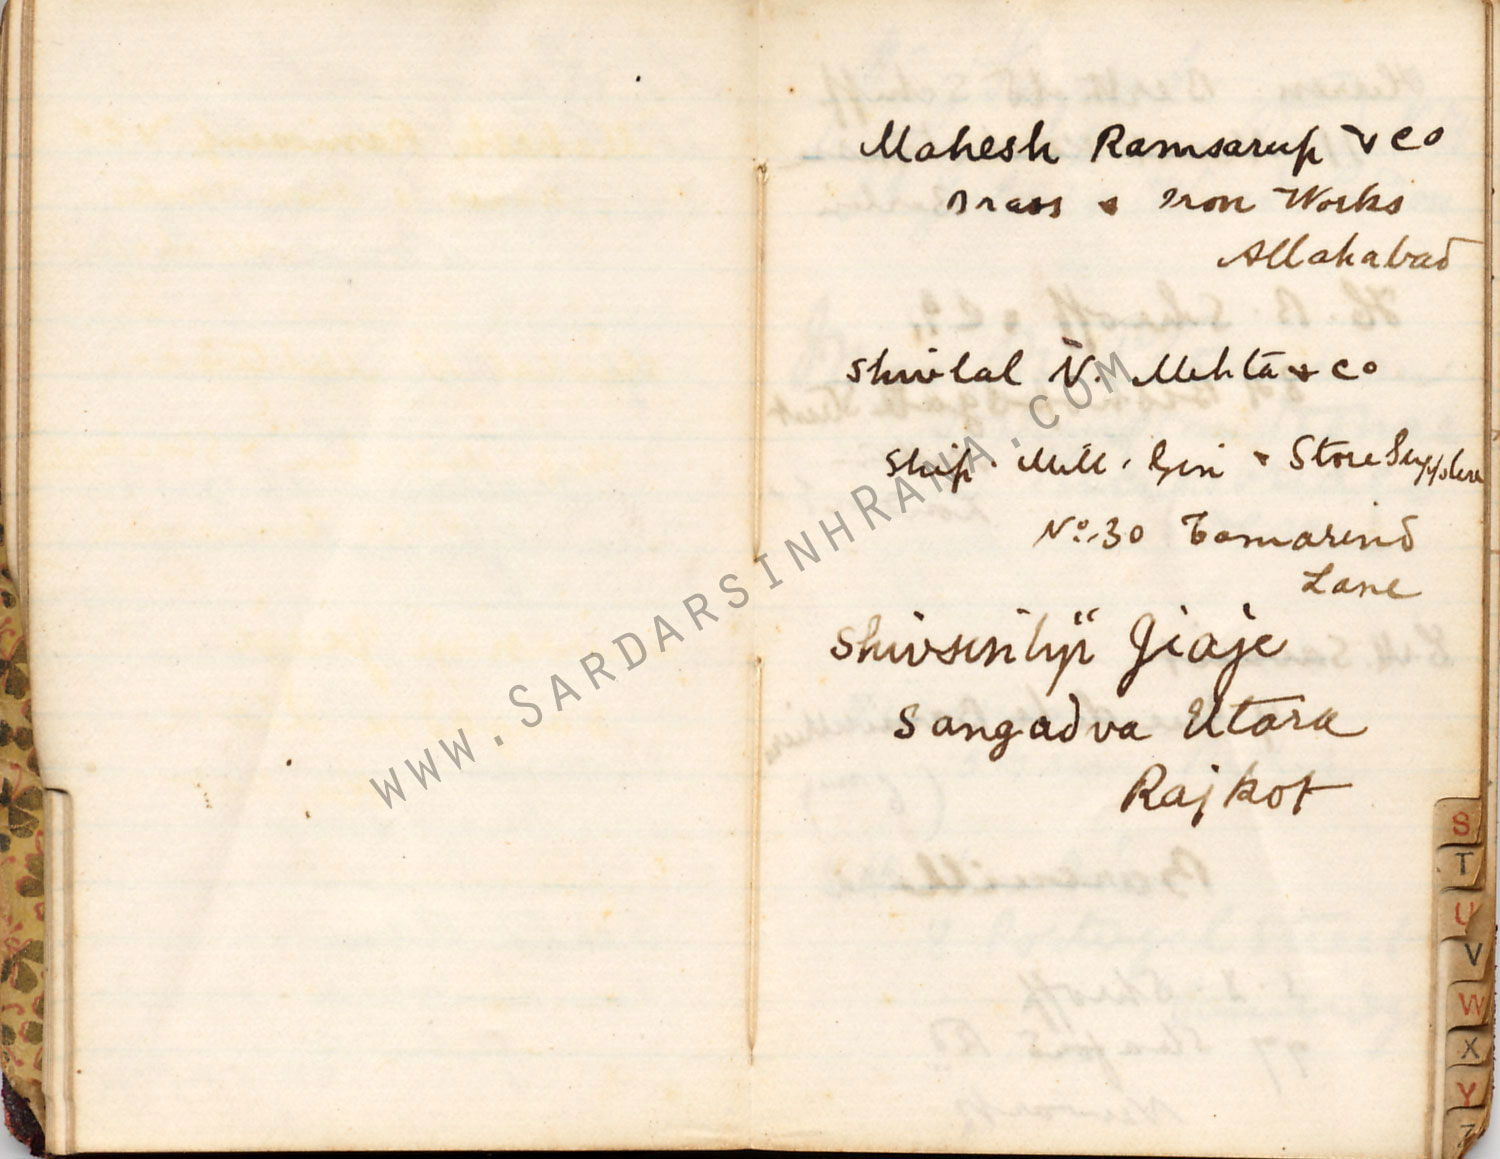 Mahesh Ramsarup & Co
Brass & Iron Works
Allahabad
Shivlal N. Mehta & Co
Ship. Mill. Gin & Store Suppliers
No. 30 Tamarind
Lane
Shivsinhji
Sangadva Utara
Rajkot
WWW.SARDARSINHRANA.COM
S
T
U
V
W
X
Y
Z